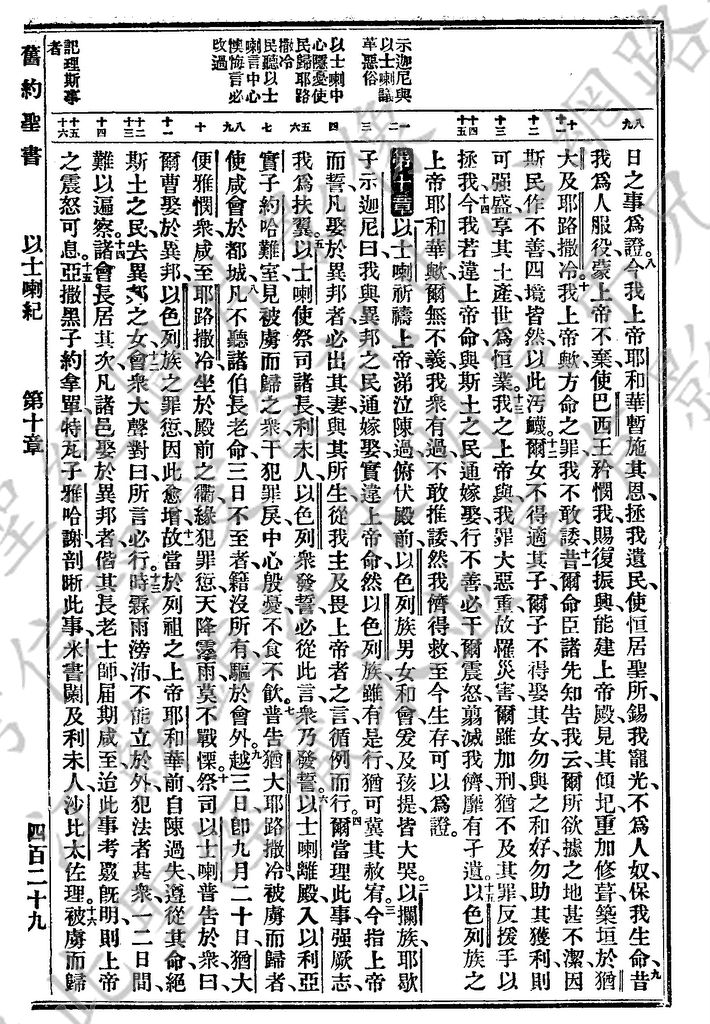 舊約聖書 以士喇紀 第十章 四百二十九
示迦尼與
以士喇議
革惡俗
以士喇中
心隱憂使
民歸耶路
撒冷
民聽以士
喇言中心
懊悔言必
改過
記理斯事
者
八 九 十 十一 十二 十三 十四 十五 一 二 三 四 五 六 七 八 九 十 十一 十二 十三 十四 十五 十六
日之事為證、八今我上帝耶和華暫施其恩、拯我遺民、使恒居聖所、錫我寵光、不為人奴、保我生命、九昔
我為人服役、蒙上帝不棄、使巴西王矜憫我、賜復振興、能建上帝殿、見其傾圮、重加修葺、築垣於猶
大及耶路撒冷、十我上帝歟、方命之罪、我不敢諉、十一昔爾命臣諸先知告我云、爾所欲據之地、甚不潔、因
斯民作不善、四境皆然、以此汚衊、十二爾女不得適其子、爾子不得娶其女、勿與之和好、勿助其獲利、則
可強盛、享其土產、世為恒業、十三我之上帝與、我罪大惡重、故罹災害、爾雖加刑、猶不及其罪、反援手以
拯我、十四今我若違上帝命、與斯土之民、通嫁娶、行不善、必干爾震怒、翦滅我儕、靡有孑遺、十五以色列族之
上帝耶和華歟、爾無不義、我衆有過、不敢推諉、然我儕得救、至今生存、可以為證。
第十章 以士喇祈禱上帝、涕泣陳過、俯伏殿前、以色列族男女和會、爰及孩提、皆大哭、二以攔族耶歇
子示迦尼曰、我與異邦之民通嫁娶、實違上帝命、然以色列族雖有是行、猶可冀其赦宥、三今指上帝
而誓、凡娶於異邦者、必出其妻、與其所生、從我主及畏上帝者之言、循例而行、四爾當理此事、强厥志、
我為扶翼、五以士喇使祭司諸長、利未人、以色列衆發誓、必從此言、衆乃發誓、六以士喇離殿、入以利亞
實子約哈難室、見被虜而歸之衆、干犯罪戾、中心殷憂、不食不飲、七普告猶大耶路撒冷、被虜而歸者、
使咸會於都城、八凡不聽諸伯長老命、三日不至者、籍沒所有、驅於會外、九越三日、卽九月二十日、猶大
便雅憫衆、咸至耶路撒冷、坐於殿前之衢、緣犯罪愆、天降霪雨、莫不戰慄、十祭司以士喇普告於衆曰、
爾曹娶於異邦、以色列族之罪愆、因此愈增、十一故當於列祖之上帝耶和華前、自陳過失、遵從其命、絕
斯土之民、去異邦之女、十二會衆大聲對曰、所言必行、十三時霖雨滂沛、不能立於外、犯法者甚衆、一二日間
難以遍察、十四諸會長居其次、凡諸邑娶於異邦者、偕其長老士師、屆期咸至、迨此事考覈旣明、則上帝
之震怒可息、十五亞撒黑子約拿單、特瓦子雅哈謝、剖晰此事、米書闌及利未人沙比太佐理、十六被虜而歸